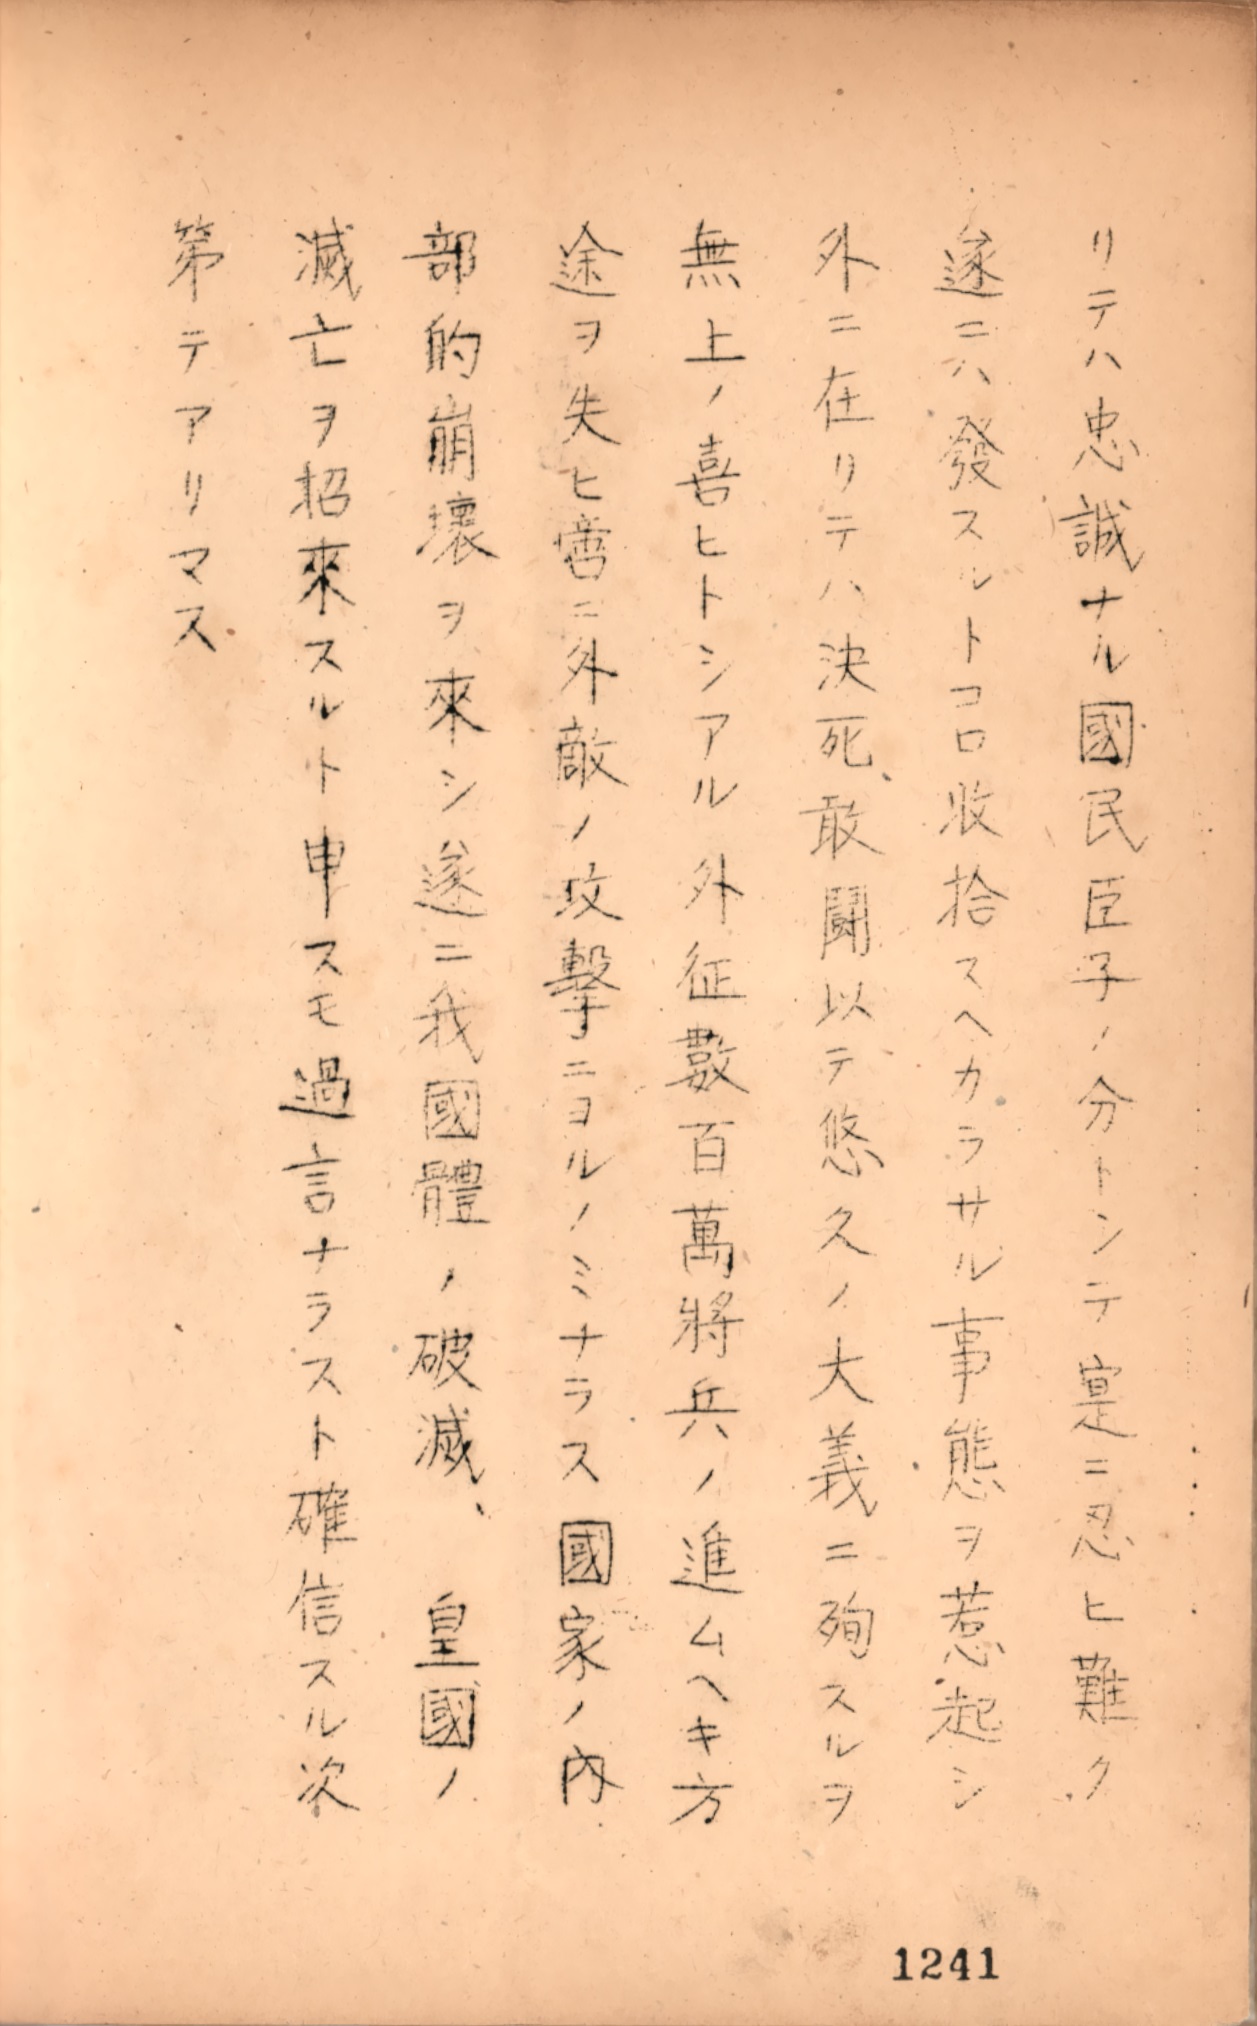 リテハ忠誠ナル國民臣子ノ分トシテ寔ニ忍ヒ難ク
遂ニハ發スルトコロ收拾スヘカラサル事態ヲ惹起シ
外ニ在リテハ決死敢鬪以テ悠久ノ大義ニ殉スルヲ
無上ノ喜ヒトシアル外征數百萬將兵ノ進ムヘキ方
途ヲ失ヒ啻ニ外敵ノ攻擊ニヨルノミナラス國家ノ內
部的崩壞ヲ來シ遂ニ我國體ノ破滅、皇國ノ
滅亡ヲ招來スルト申スモ過言ナラスト確信スル次
第テアリマス
1241